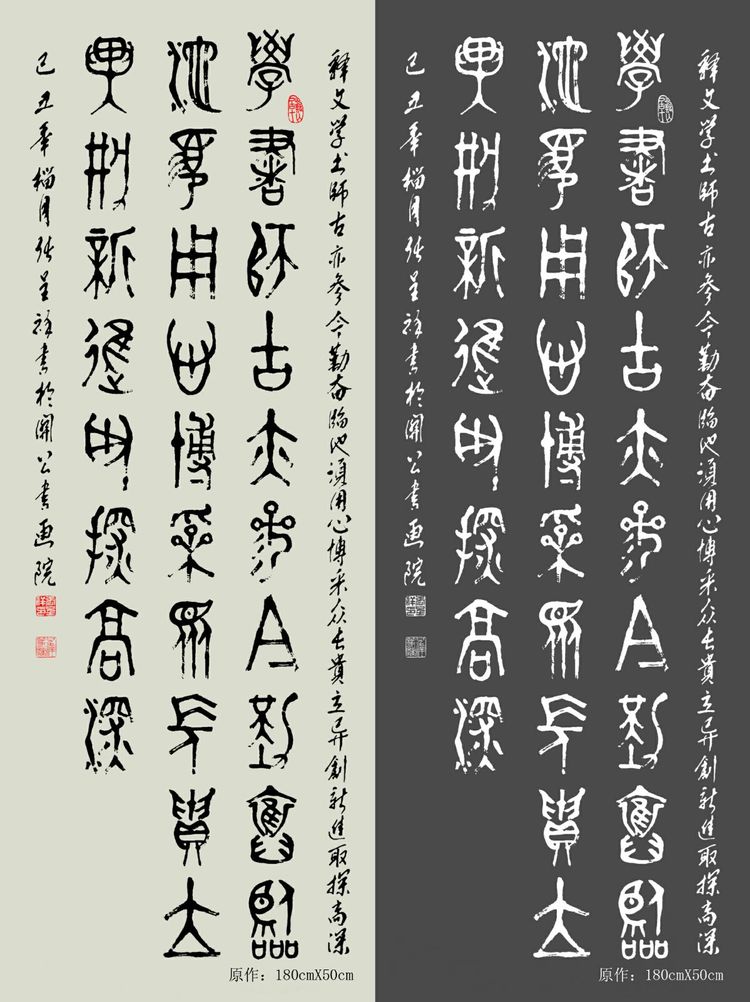 釋文学书師古亦参今勤奋臨池須用心博采众长貴立异創新進取探高深
學書師古亦參今勤奮臨
池須用心博采眾長貴立
異刱新進取探高深
己丑年榴月张呈祥书於關公书画院
原作：180cmX50cm
釋文学书師古亦参今勤奋臨池須用心博采众长貴立异創新進取探高深
學書師古亦參今勤奮臨
池須用心博采眾長貴立
異刱新進取探高深
己丑年榴月张呈祥书於關公书画院
原作：180cmX50cm